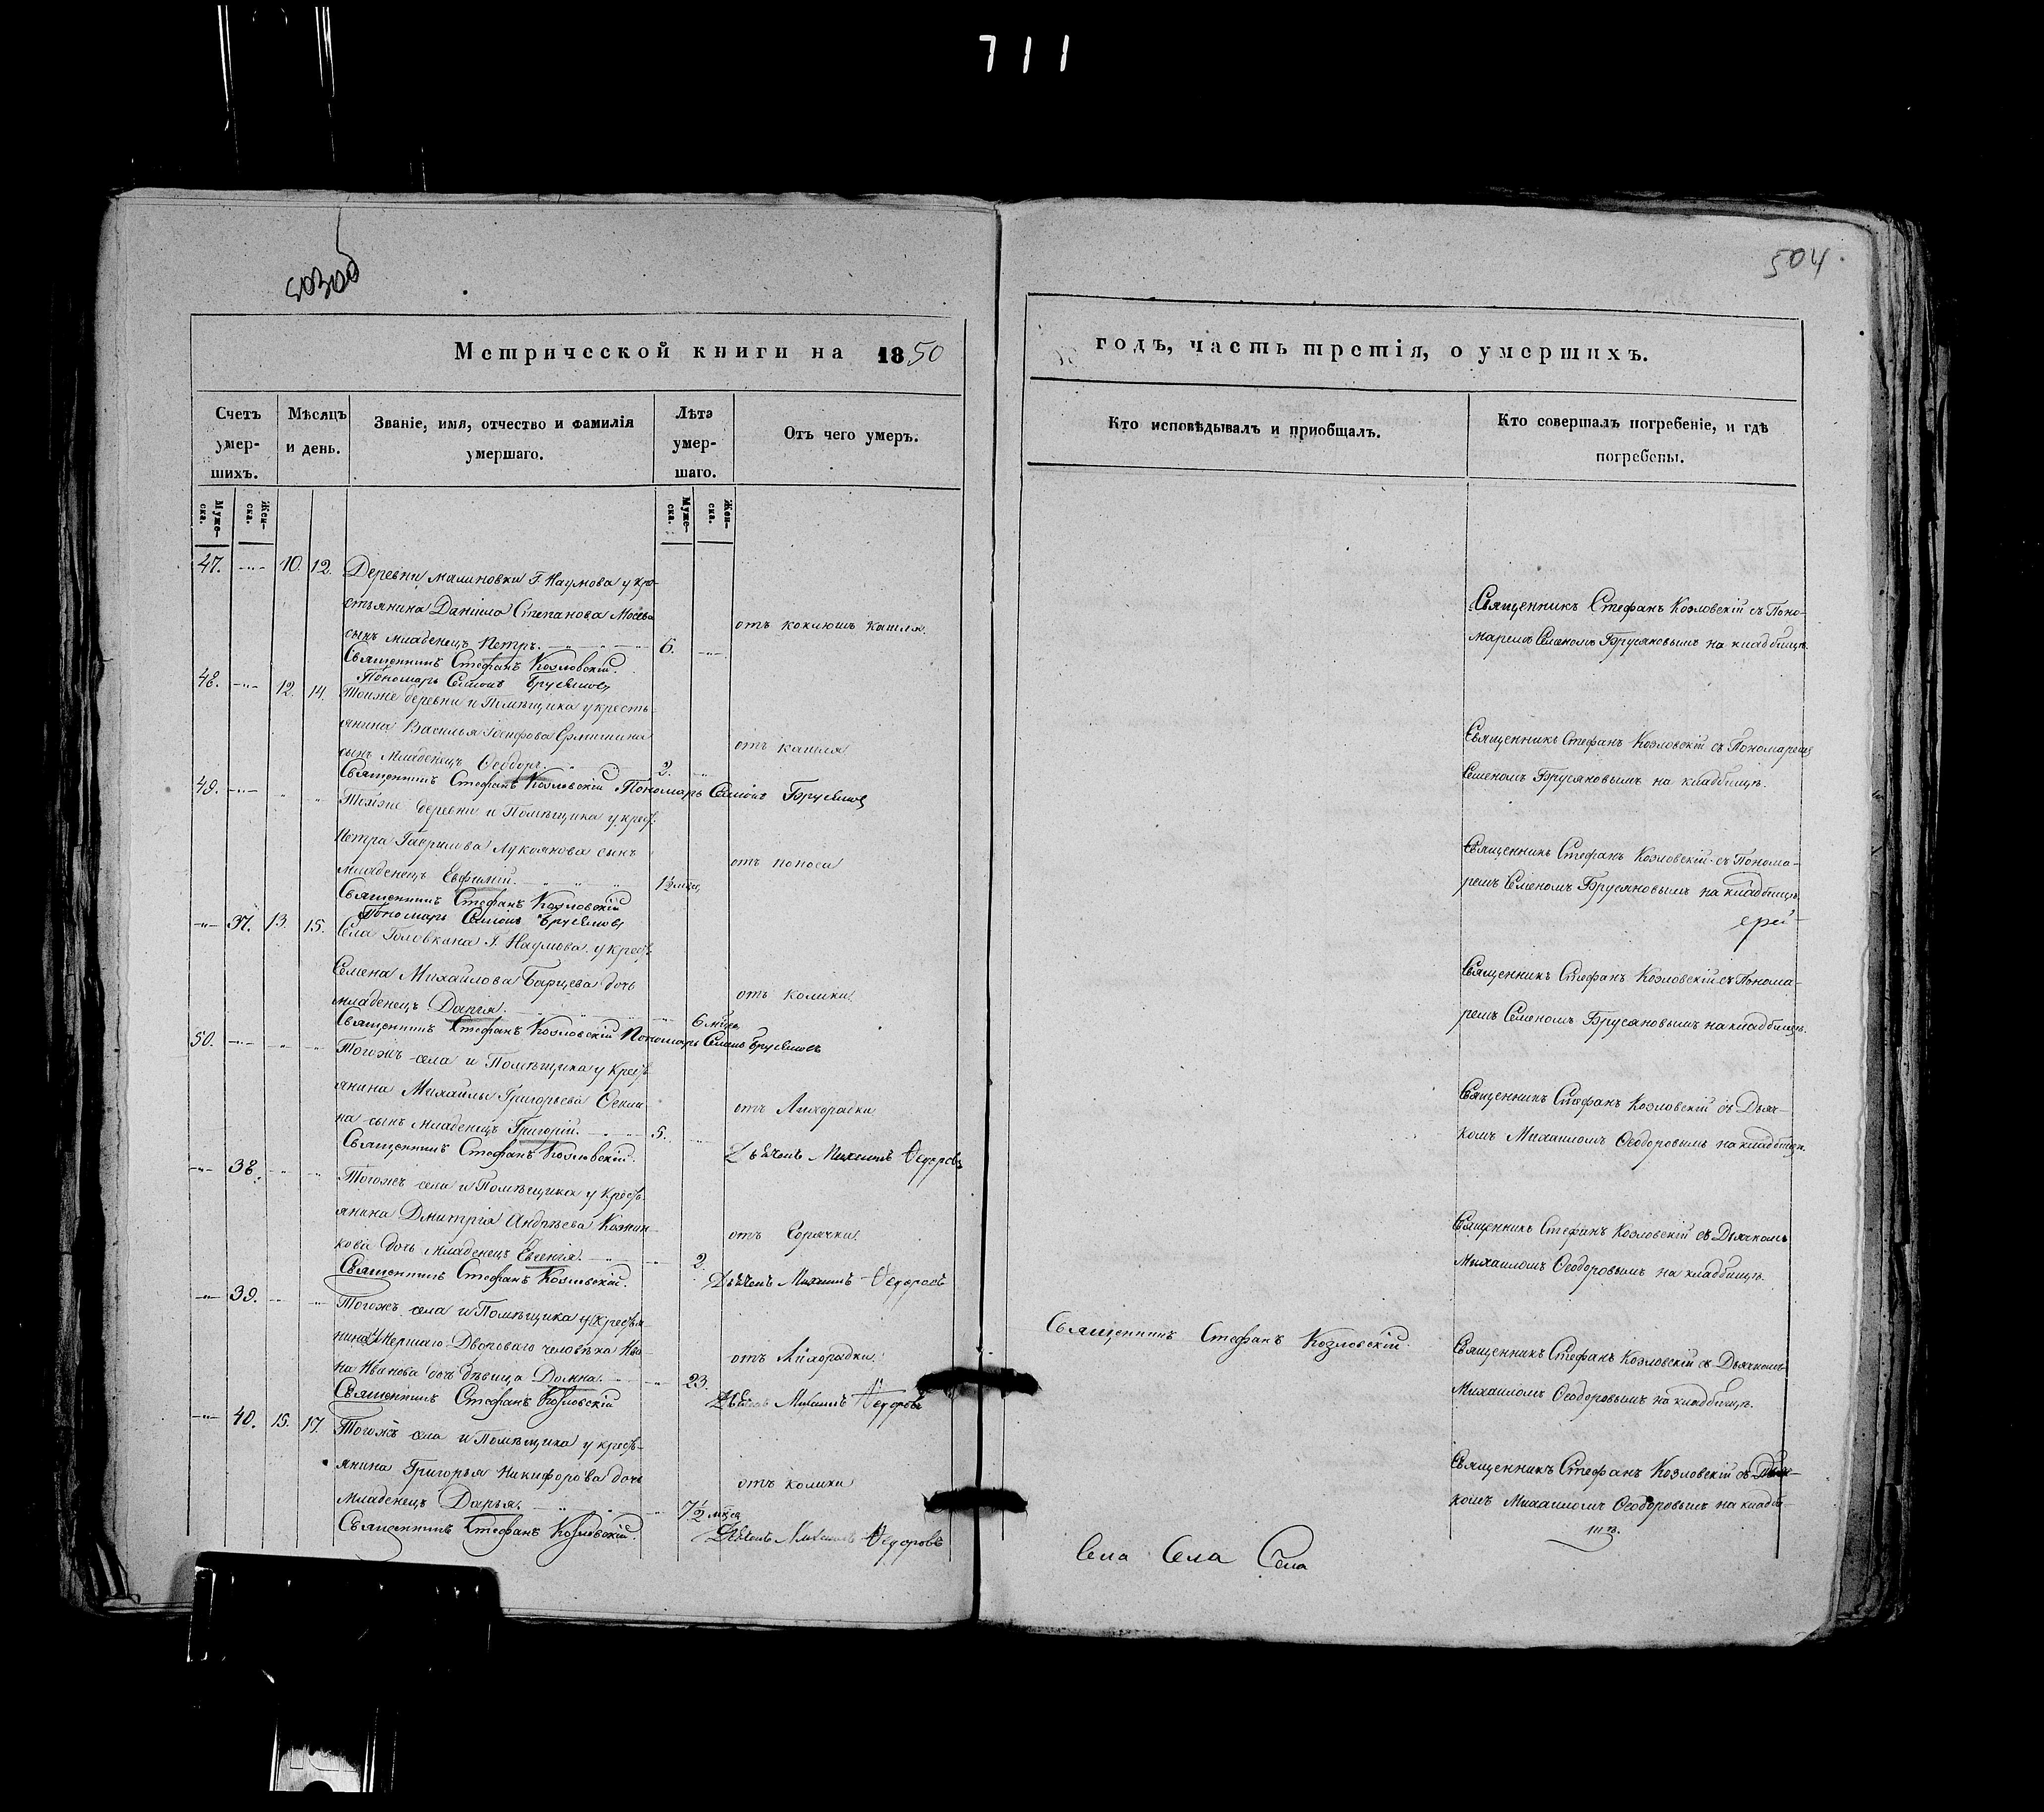 711
503об
504
Метрической книги на 1850
годъ, часть третія, о умершихъ.
Счетъ умер-шихъ.
Мѣсяцъ и день.
Званіе, имя, отчество и фамилія умершаго.
Лѣта умер-шаго.
Отъ чего умеръ.
Кто исповѣдывалъ и приобщалъ.
Кто совершалъ погребеніе, и гдѣ погребены.
Муже-ска.
Жен-ска.
Муже-ска.
Жен-ска.
47. 10. 12. Деревни Малиновки Г. Наумова у кре-
стьянина Даніила Степанова
сынъ младенецъ Петръ. 6. отъ коклюшъ кашля.
Священникъ Стефанъ Козловскій.
Пономарь Симонъ Брусяновъ
Священникъ Стефанъ Козловскій съ Поно-
маремъ Семеномъ Брусяновымъ на кладбищѣ.
48. 12. 14. Тойже деревни и Помѣщика у кресть-
янина Василья
сынъ Младенецъ Ѳеодоръ. 2. отъ кашля
Священникъ Стефанъ Козловскій Пономарь Симонъ Брусяновъ
Священникъ Стефанъ Козловскій съ Пономаремъ
Семеномъ Брусяновымъ на кладбищѣ.
49. Тойже деревни и Помѣщика у крест.
Петра Гаврилова Лукоянова сынъ
младенецъ Евфимій. 1½ мѣсяц. отъ поноса
Священникъ Стефанъ Козловскій
Пономарь Симонъ Брусяновъ
Священникъ Стефанъ Козловскій съ Понома-
ремъ Семеномъ Брусяновымъ на кладбищѣ.
ерей
37. 13. 15. Села Головкина Г. Наумова у крест.
Семена Михайлова Барцева дочь
младенецъ Дарія. 6 мѣсяц. отъ колики.
Священникъ Стефанъ Козловскій Пономарь Симонъ Брусяновъ
Священникъ Стефанъ Козловскій съ Понома-
ремъ Семеномъ Брусяновымъ на кладбищѣ.
50. Тогожъ села и Помѣщика у крест-
янина Михайлы Григорьева
на сынъ младенецъ Григорій. 5. отъ Лихорадки
Священникъ Стефанъ Козловскій. Дьячекъ Михаилъ Ѳедоровъ
Священникъ Стефанъ Козловскій съ Дьяч-
комъ Михаиломъ Ѳеодоровымъ на кладбищѣ.
38. Тогожъ села и Помѣщика у крест-
янина Дмитрія Андрѣева
кова дочь Младенецъ Евгенія. 2. отъ Горячки
Священникъ Стефанъ Козловскій. Дьячекъ Михаилъ Ѳедоровъ
Священникъ Стефанъ Козловскій съ Дьячкомъ
Михаиломъ Ѳеодоровымъ на кладбищѣ.
39. Тогожъ села и Помѣщика у крестья
нина Умершаго Двороваго человѣка Ива-
на Иванова дочь дѣвица Домна. 23. отъ Лихорадки.
Священникъ Стефанъ Козловскій Дьячекъ Михаилъ Ѳедоровъ
Священникъ Стефанъ Козловскій.
Священникъ Стефанъ Козловскій съ Дьячкомъ
Михаиломъ Ѳеодоровымъ на кладбищѣ.
40. 15. 17. Тогожъ села и Помѣщика у крест-
янина Григорья Никифорова дочь
Младенецъ Дарья. 7½ мѣся отъ колики
Священникъ Стефанъ Козловскій. Дьячекъ Михаилъ Ѳедоровъ
Священникъ Стефанъ Козловскій съ Дьяч-
комъ Михаиломъ Ѳеодоровымъ на кладби-
щѣ.
Села Села Села